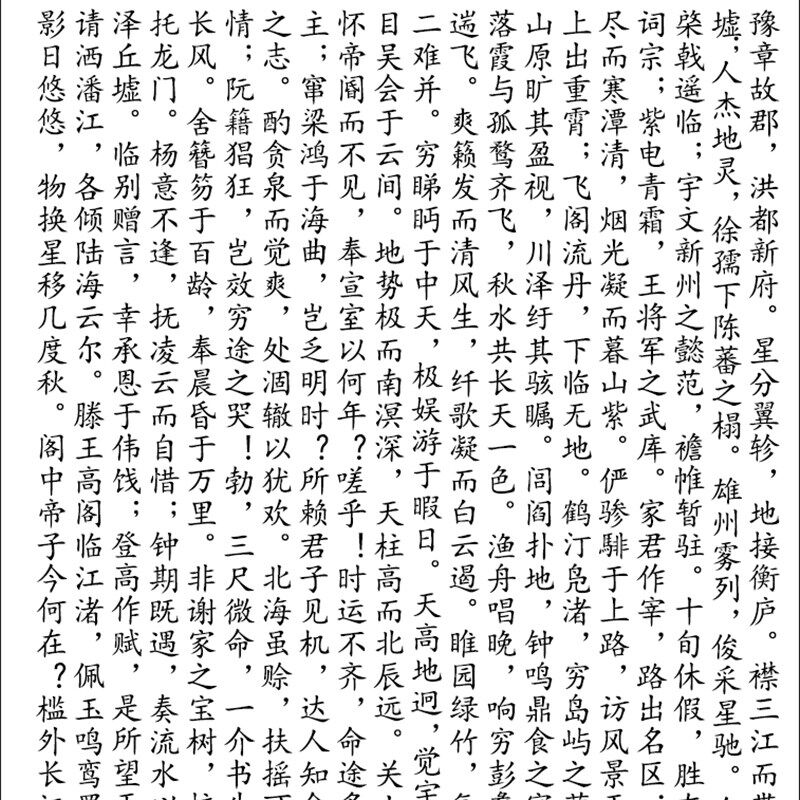 豫章故郡，洪都新府。星分翼轸，地接衡庐。襟三江而
墟；人杰地灵，徐孺下陈蕃之榻。雄州雾列，俊采星驰。
棨戟遥临；宇文新州之懿范，襜帷暂驻。十旬休假，胜
词宗；紫电青霜，王将军之武库。家君作宰，路出名区；
尽而寒潭清，烟光凝而暮山紫。俨骖騑于上路，访风景
上出重霄；飞阁流丹，下临无地。鹤汀凫渚，穷岛屿之
山原旷其盈视，川泽纡其骇瞩。闾阎扑地，钟鸣鼎食之
落霞与孤鹜齐飞，秋水共长天一色。渔舟唱晚，响穷彭
遄飞。爽籁发而清风生，纤歌凝而白云遏。睢园绿竹，
二难并。穷睇眄于中天，极娱游于暇日。天高地迥，觉
目吴会于云间。地势极而南溟深，天柱高而北辰远。关
怀帝阍而不见，奉宣室以何年？嗟乎！时运不齐，命途
主；窜梁鸿于海曲，岂乏明时？所赖君子见机，达人知
之志。酌贪泉而觉爽，处涸辙以犹欢。北海虽赊，扶摇
情；阮籍猖狂，岂效穷途之哭！勃，三尺微命，一介书
长风。舍簪笏于百龄，奉晨昏于万里。非谢家之宝树，
托龙门。杨意不逢，抚凌云而自惜；钟期既遇，奏流水
泽丘墟。临别赠言，幸承恩于伟饯；登高作赋，是所望
请洒潘江，各倾陆海云尔。滕王高阁临江渚，佩玉鸣鸾
影日悠悠，物换星移几度秋。阁中帝子今何在？槛外长